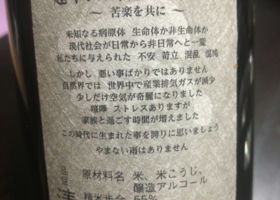 ～ 苦楽を共に ～
未知なる病原体 生命体か非生命体か
現代社会が日常から非日常へと一変
私たちに与えられた 不安 苛立 混乱
しかし、悪い事ばかりではありません
自然界では 世界中で産業排気ガスが減少
少しだけ空気が綺麗になりました
喧嘩 ストレスありますが
家族と過ごす時間が増えました
この時代に生まれた事を誇りに思いましょう
やまない雨はありません
原材料名 米、米こうじ、
醸造アルコール
精米歩合 65%